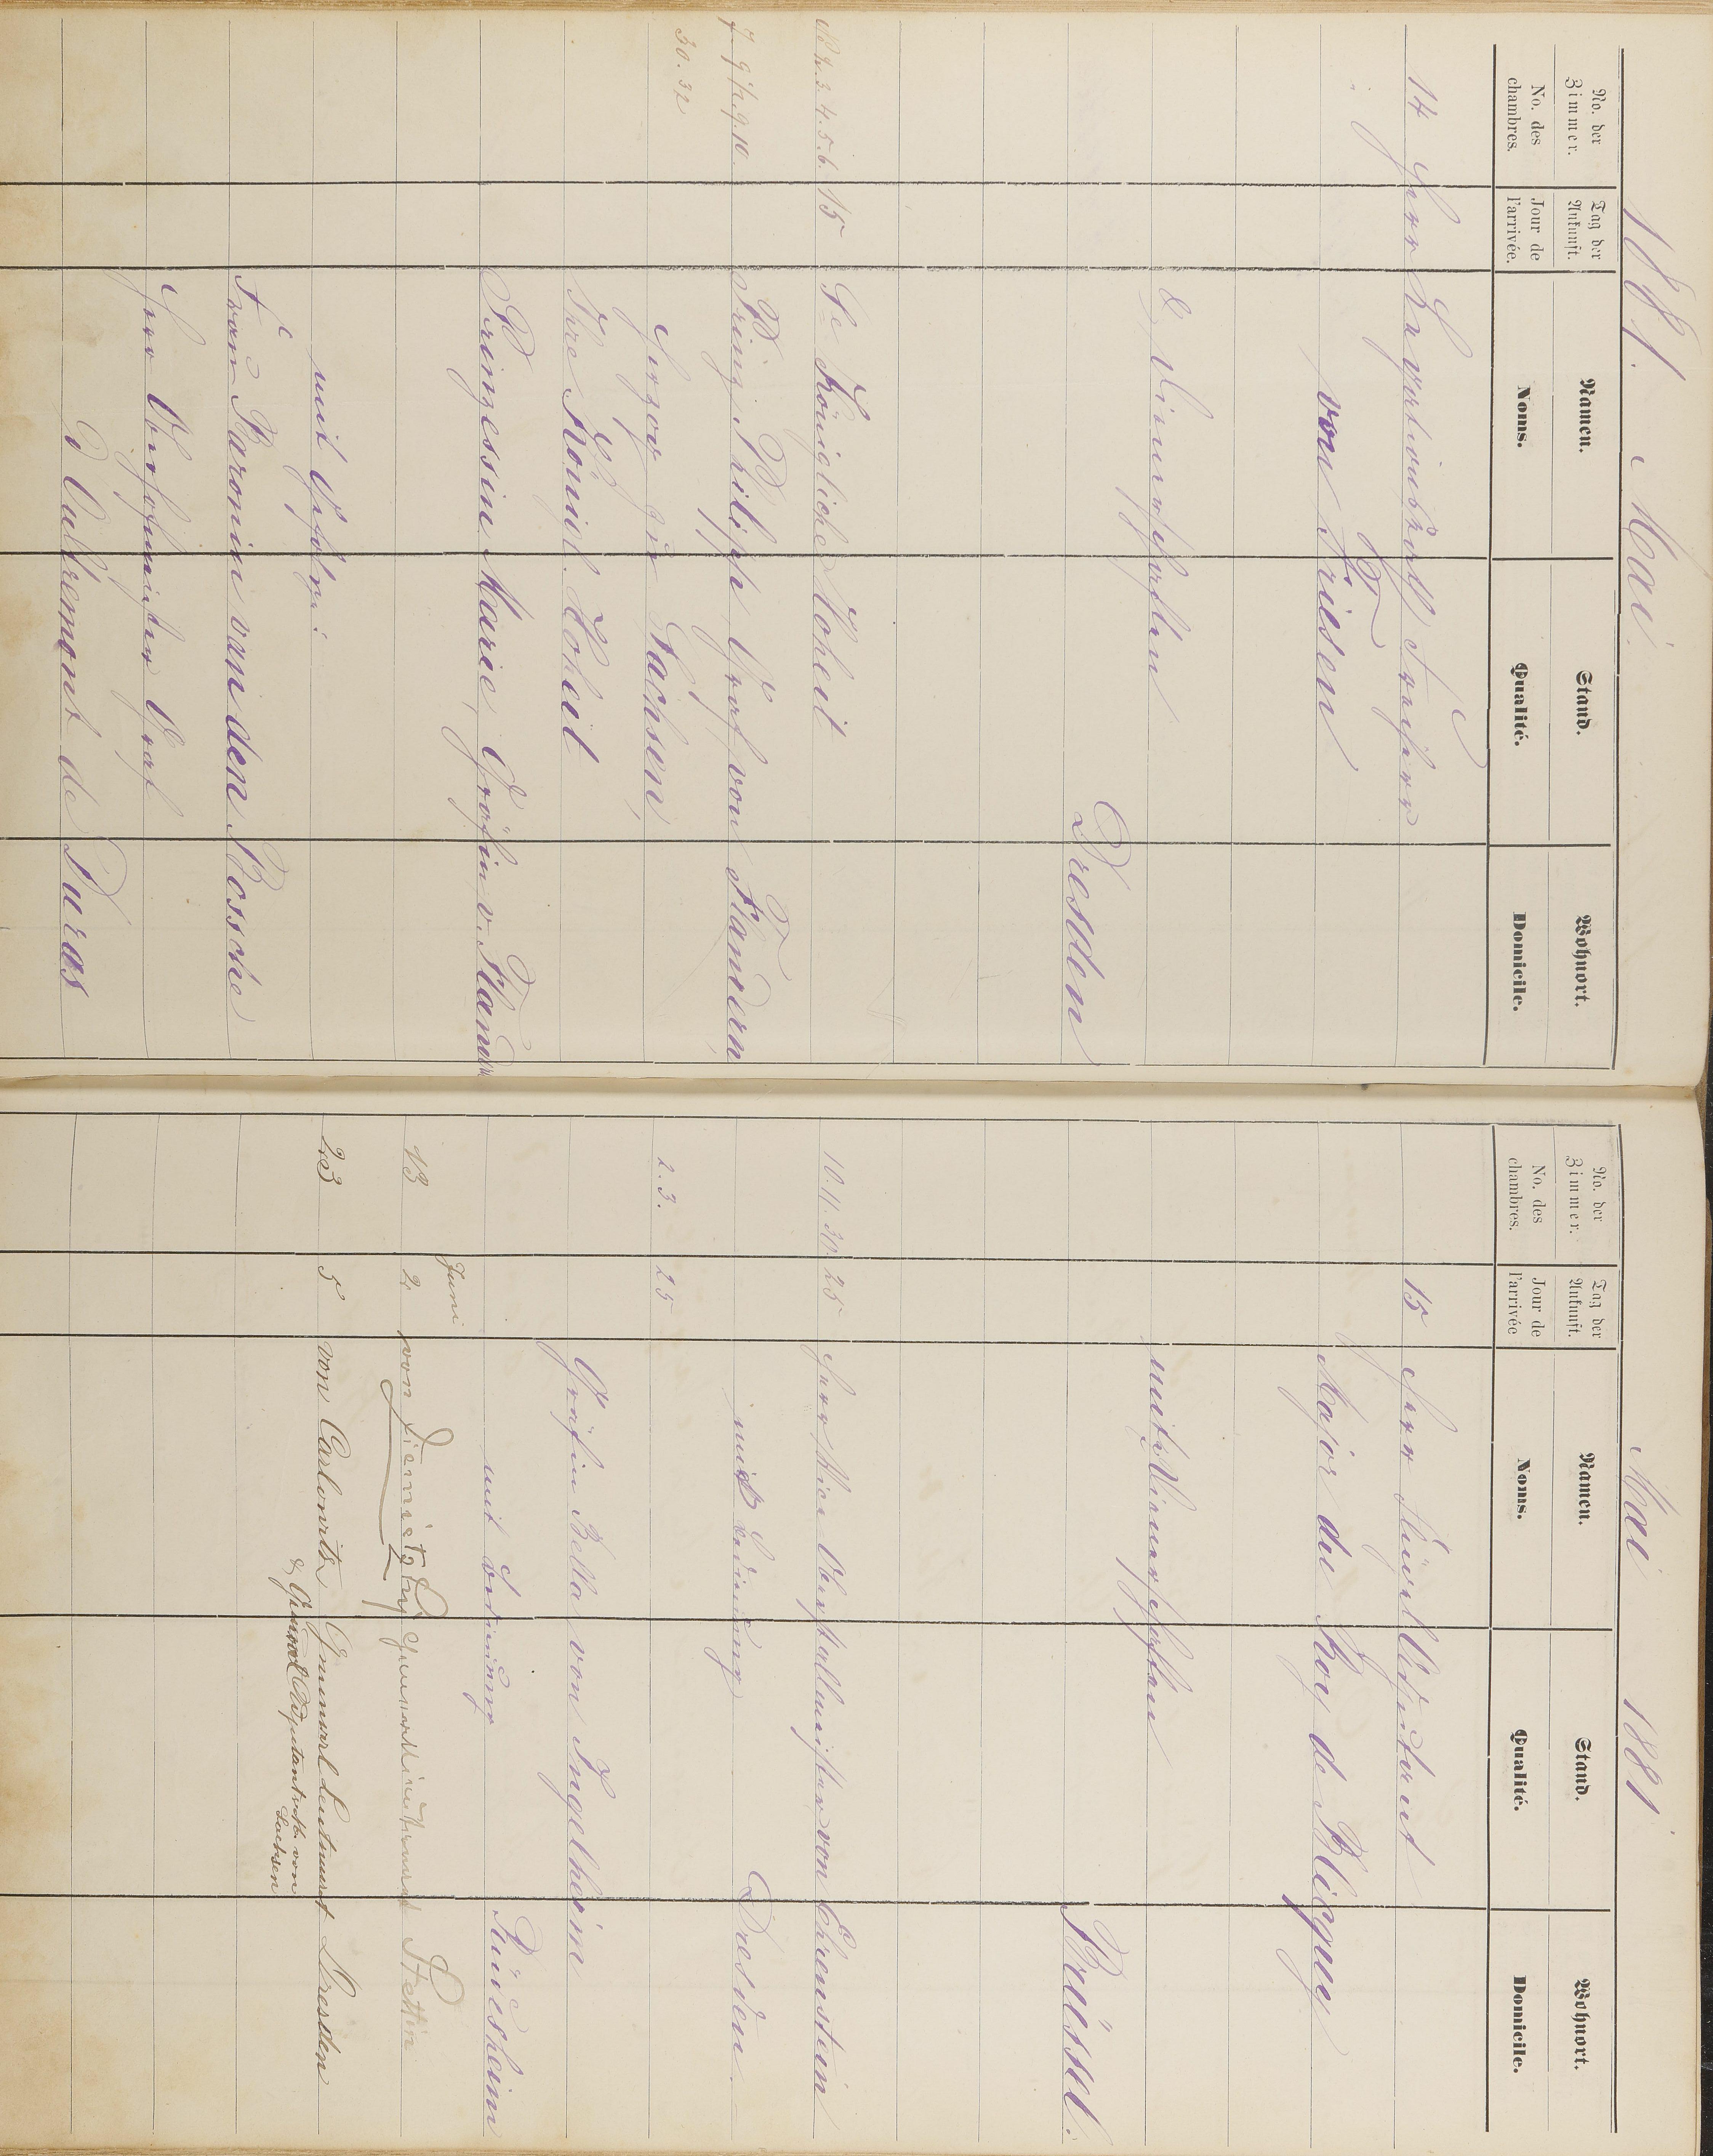 1881. Mai.
No. der Zimmer. Tag der Ankunft. Namen. Stand. Wohnort.
No. des chambres. Jour de l'arrivée. Noms. Qualité. Domicile.
14 Herr Freiherr
von Friesen
& Dienerschaften
Dresden
No 2. 3. 4. 5. 6. 15 Se Königliche Hoheit
Prinz Philipp Graf von Flandern,
Herzog zu Sachsen,
30. 32
Ihre Königl. Hoheit
Prinzessin Marie, Gräfin v. Flandern
mit Gefolge:
Frau Baronin van den Bossche
Herr Oberhofmeister Graf
d'Oultremont de Duras
Mai 1881
No. der Zimmer. Tag der Ankunft. Namen. Stand. Wohnort.
No. des chambres. Jour de l'arrivée Noms. Qualité. Domicile.
15 Herr Flügel Adjutant
Major du Roy de Blicquy
mit Dienerschaften
Brüssel.
10. 11. 30. 25 Herr Vice Oberstallmeister von Ehrenstein
mit Bedienung Dresden.
2. 3. 25
Gräfin Bella von Ingelheim
mit Bedienung Rüdesheim
Juni
13 2 von Generallieutenant Stettin
23 5 von Carlowitz General Leutnant Dresden
& General Adjutant von
Sachsen